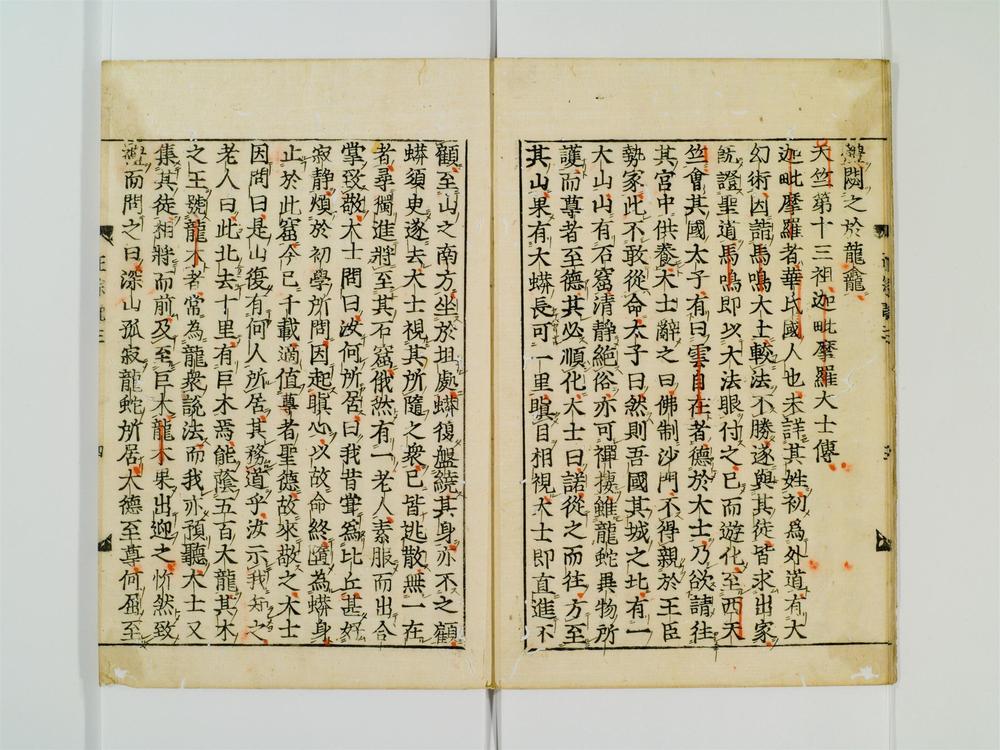 闕之於龍龕
天竺第十三祖迦毗摩羅大士傳
迦毗摩羅者華氏國人也未詳其姓初為外道有大
幻術因詣馬鳴大士較法不勝遂與其徒皆求出家
既證聖道馬鳴即以大法眼付之已而遊化至西天
竺會其國太子有曰雲自在者德於大士乃欲請往
其宮中供養大士辭之曰佛制沙門不得親於王臣
勢家此不敢從命太子曰然則吾國其城之北有一
大山山有石窟清靜絕俗亦可禪棲雖龍蛇異物所
護而尊者至德其必順化大士曰諾從之而往方至
其山果有大蟒長可一里瞋目相視大士即直進不
顧至山之南方坐於坦處蟒復盤繞其身亦不之顧
蟒須臾遂去大士視其所隨之衆已皆逃散無一在
者尋獨進將至其石窟俄然有一老人素服而出合
掌致敬大士問曰汝何所居曰我昔甞為比丘甚好
寂靜煩於初學所問因起瞋心以故命終墮為蟒身
止於此窟今已千載適值尊者聖德故來敬之大士
因問曰是山復有何人所居其務道乎汝示我知之
老人曰此北去十里有巨木焉能蔭五百大龍其木
之王號龍木者常為龍衆說法而我亦預聽大士又
集其徒相將而前及至巨木龍木果出迎之忻然致
禮而問之曰深山孤寂龍蛇所居大德至尊何屈至
正宗記三
四